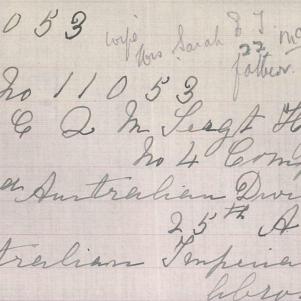 053
wife
Mrs Sarah
22
father
No 11053
C Q M Sergt H
No 4 Com
Australian Divi
25th A
tralian Imperia
abroa